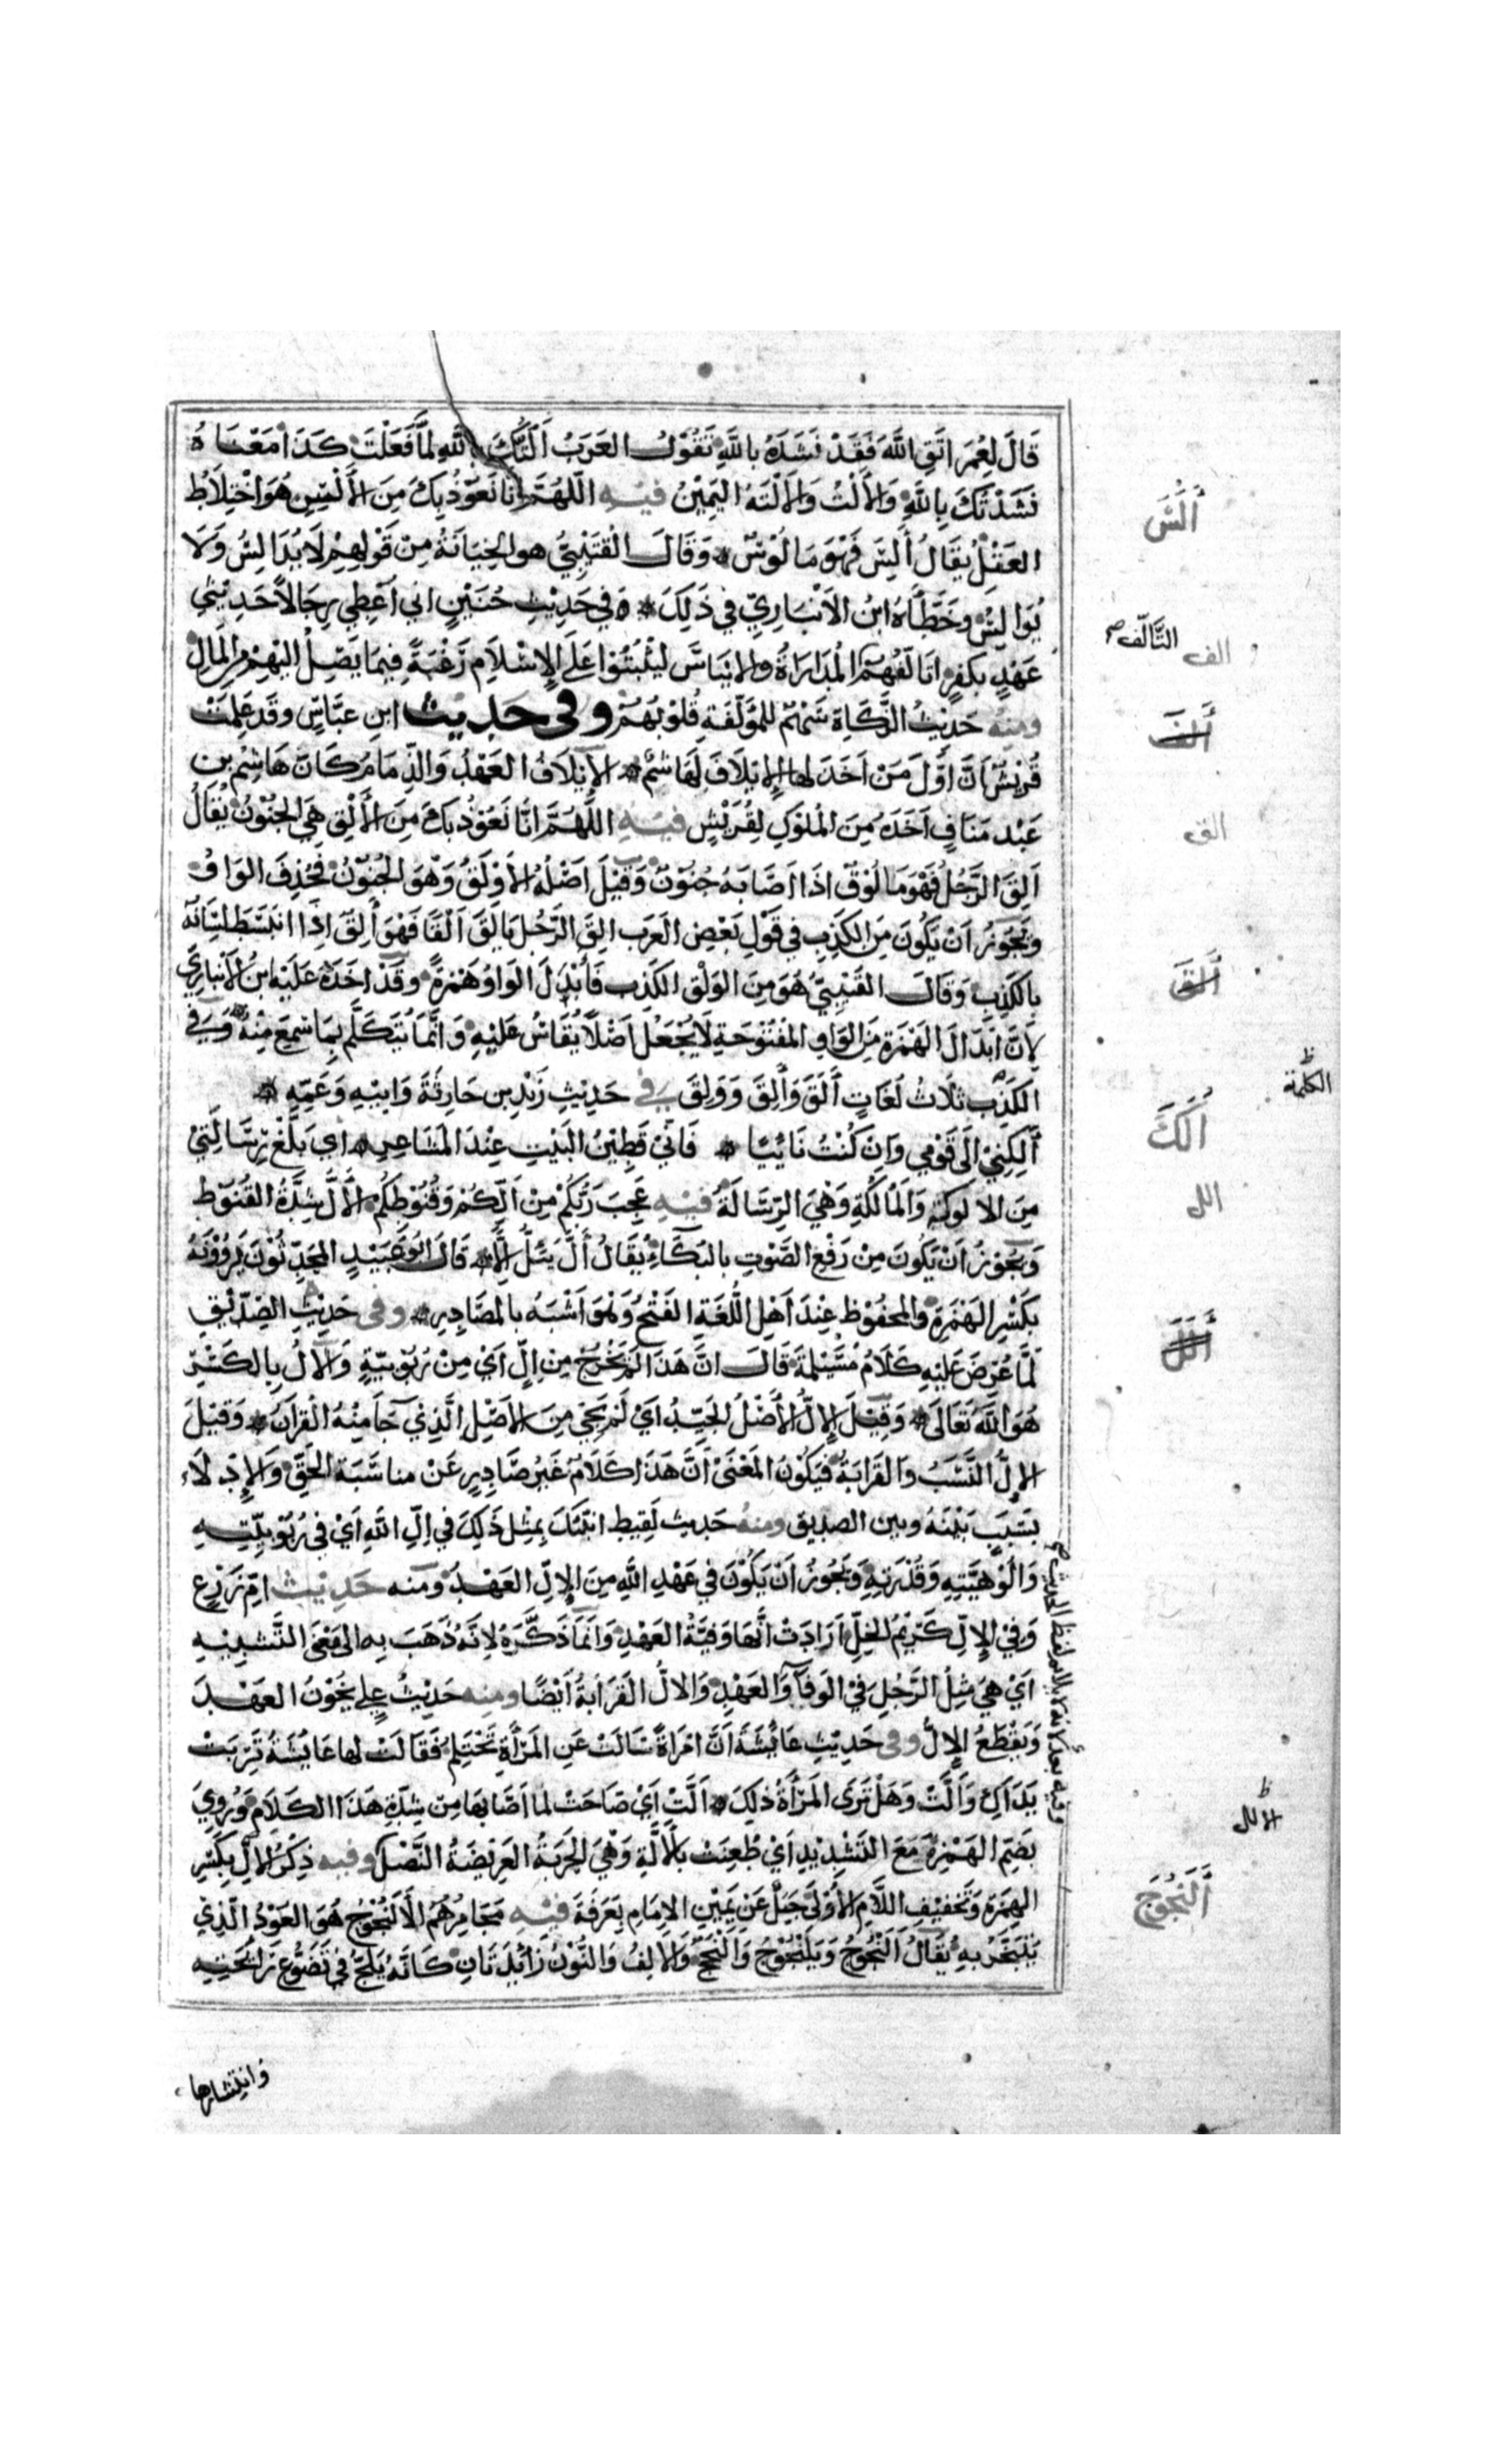 قَالَ لِعُمَرَ اتَّقِ اللَّهَ فَقَدْ نَشَدَهُ بِاللَّهِ تَقُوْلُ العَرَبُ أَلَتُّكَ بِاللَّهِ لِمَّا فَعَلْتَ كَذَا مَعْنَاهُ
نَشَدْتُكَ بِاللَّهِ وَالأَلْتُ وَالأَلْتَهُ اليَمِيْنُ فيه اللَّهُمَّ إنا نَعُوْذُ بِكَ مِنَ الأَلْسِ هُوَ اخْتِلَاطُ
أَلَسَ
العَقْلِ يُقَالُ أُلِسَ فَهْوَ مَالُوْسٌ وَقَالَ القُتَيْبِيُّ هو الخِيَانَةُ مِنْ قَوْلِهِمْ لَا يُدَالِسُ وَلَا
يُوَالِسُ وخَطَّأَهُ ابنُ الأَنْبَارِيِّ في ذَلِكَ وَفي حَدِيْثِ حُنَيْنٍ اني أُعْطِي رِجَالاً حَدِيْثِي
عَهْدٍ بكفرٍ اتَالَّفُهُمْ المُدَارَاةُ والايْنَاسُ لِيَثْبُتُوْا عَلَى الإِسْلَامِ رَغْبَةً فِيمَا يَصِلُ اليْهِمْ مِنَ المَالِ
الف التَّألّف صح
ومنه حَدِيْثُ الزَّكَاةِ سَهْمٌ للمُؤَلَّفَةِ قُلُوْبُهُمْ وفى حَدِيْث ابنِ عبَّاسٍ وقد عَلِمَتْ
ألف
قُرَيْشٌ أَنَّ أَوَّلَ مَنْ أَخَذَ لها الإِيْلَافَ لَهَاشِمٌ الإِيْلَافُ العَهْدُ وَالذِّمَامُ كَانَ هَاشِمُ بن
عَبْد مَنَافٍ أَخَذَهُ مِنَ المُلُوْكِ لِقُرَيْشٍ فيه اللَّهُمَّ انَّا نَعُوْذُ بِكَ مِنَ الأَلْقِ هِيَ الجُنُوْنُ يُقَالُ
الق
أُلِقَ الرَّجُلُ فَهْوَ مَالُوْقٌ اذَا أَصَابَهُ جُنُوْنٌ وَقِيْلَ أَصْلُهُ الأَوْلَقُ وَهْوَ الجُنُوْنُ فَحُذِفَ الوَاوُ
وَيَجُوْزُ أَنْ يَكُونَ مِنَ الكَذِبِ في قَوْلِ بَعْضِ العَرَبِ الَقَ الرَّجُلُ يَالِقُ أَلْقًا فَهْوَ أَلِقٌ اذَا انْبَسَطَ لِسَانُهُ
بالكَذِبِ وَقَالَ القُتَيْبِيُّ هُوَ مِنَ الوَلْقِ الكَذِب فَأَبْدَلَ الوَاوَ هَمْزَةً وَقَدْ أَخَذَهُ عَلَيْهِ ابنُ الأَنْبَارِيِّ
ألق
لِأَنَّ ابْدَالَ الهَمْزَةِ مِنَ الوَاوِ المَفْتُوْحَةِ لَا يُجْعَلُ أَصْلاً يُقَاسُ عَلَيْهِ وَانَّمَا يُتَكَلَّمُ بِمَا سُمِعَ مِنْهُ وَفي
الكَذِبِ ثَلَاثُ لُغَاتٍ أَلَقَ وَأَلِقَ وَوَلِقَ في حَدِيْثِ زَيْدِ بن حَارِثَةَ وَابِيْهِ وَعَمِّهِ
الكلمة ظ
أَلِكْنِيْ الَى قَوْمِي وَانْ كُنْتُ نَائِيًا فَانِّي قَطِيْنُ البَيْتِ عِنْدَ المَشَاعِرِ أي بَلِّغْ رِسَالَتِيْ
أَلَكَ
مِنَ الالوكة وَالمَألُكَةِ وَهْيَ الرِّسَالَةُ فيه عَجِبَ رَبُّكُمْ مِنْ أَلِّكُمْ وَقُنُوْطِكُمْ الأَلُّ شِدَّةُ القُنُوْطِ
الل
وَيَجُوْزُ أَنْ يَكُونَ مِنْ رَفْعِ الصَّوْتِ بالبُكَاءِ يُقَالُ أَلَّ يَئِلُّ أَلًّا قَالَ أَبُوْ عُبَيْدٍ المُحَدِّثُوْنَ يَرْوُوْنَهُ
بِكَسْرِ الهَمْزَةِ والمَحْفُوْظُ عِنْدَ أَهْلِ اللُّغَةِ الفَتْحُ وَهْوَ أَشْبَهُ بالمَصَادِرِ وفى حَدِيْثِ الصِّدِّيْقِ
ألل
لَمَّا عُرِضَ عَلَيْهِ كَلَامُ مُسَيْلِمَةَ قَالَ انَّ هَذَا لَمْ يَخْرُجْ مِنْ إِلٍّ أَيْ مِنْ رُبُوْبِيَّةٍ وَالإِلُّ بِالكَسْرِ
هُوَ اللَّهُ تَعَالَى وَقِيْلَ الإِلُّ الأَصْلُ الجَيِّدُ أَيْ لَمْ يَجِئْ مِنَ الأَصْلِ الَّذِيْ جَا مِنْهُ القُرآنُ وَقِيْلَ
الإِلُّ النَّسَبُ وَالقَرَابَةُ فَيَكُوْنُ المَعْنَى أَنَّ هَذَا كَلَامٌ غَيْرُ صَادِرٍ عَنْ مناسَبَةِ الحَقِّ وَالإِدْلَاءِ
بسَبَبٍ بَيْنَهُ وبين الصديق ومنه حَديث لَقِيطٍ انبئك بِمِثْلِ ذَلِكَ في إِلِّ اللَّهِ أَيْ في رُبُوْبِيَّتِهِ
وَالُوْهِيَّتِهِ وَقُدْرَتِهِ وَيَجُوزُ أَنْ يَكُوْنَ في عَهْدِ اللَّهِ مِنَ الإِلِّ العَهْدُ ومنه حَدِيْث امِّ زَرْعٍ
وَفِيْ الإِلِّ كَرِيْمُ الخِلِّ أَرَادَتْ أَنَّهَا وَفِيَّةُ العَهْدِ وَانَّمَا ذَكَّرَهُ لِأَنَّهُ ذَهَبَ بِهِ الى مَعْنَى التَّشْبِيْهِ
أَيْ هِيَ مِثْلُ الرَّجُلِ فِيْ الوَفَآءِ وَالعَهْدِ وَالالُّ القَرَابَةُ أَيْضًا ومنه حَدِيْثُ علي يَخُوْنُ العَهْدَ
وَيَقْطَعُ الإِلَّ وفى حَدِيْثِ عَائِشَةَ أَنَّ امْرَاةً سَالَتْ عَنِ المَرْأَةِ تَحْتَلِمُ فَقَالَتْ لها عَائِشَةُ تَرِبَتْ
يَدَاكِ وَأَلَّتْ وَهَلْ تَرَى المَرْأَةُ ذَلِكَ أَلَّتْ أَيْ صَاحَتْ لما أَصَابَهَا مِن شِدَّةِ هَذَا الكَلَامِ وَرُوِيَ
بِضَمِّ الهَمْزَةِ مَعَ التَشْدِيْدِ أَيْ طُعِنَتْ بِالأَلَّةِ وَهْيَ الحَرْبَةُ العَرِيْضَةُ النَّصْلِ وفيه ذِكْرُ الالِ بِكَسْرِ
الإلل ظ
الهمَزَةِ وَتَخْفيْفِ اللَّامِ الأُوْلَى جَبَلٌ عَنْ يَمِيْنِ الإِمَامِ بِعَرَفَةَ فيه مَجَامِرُهُمُ الأَلَنْجُوْجُ هُوَ العَوْدُ الَّذِيْ
أَلَنْجُوْجَ
يُتَبَخَّرُ بِهِ يُقَالُ أَلَنْجُوْجُ وَيَلَنْجُوْجُ وَأَلَنْجَجُ وَالأَلِفُ وَالنُّوْنُ زَائِدَتَانِ كَانَّهُ يَلَجُّ فِيْ تَضَوُّعِ رَائِحَتِهِ
وَانْتِشَارِهَا